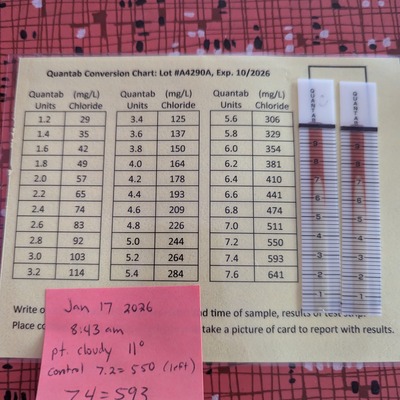 Quantab Conversion Chart: Lot #A4290A, Exp. 10/2026
Quantab Units (mg/L) Chloride Quantab Units (mg/L) Chloride Quantab Units (mg/L) Chloride
1.2 29 3.4 125 5.6 306
1.4 35 3.6 137 5.8 329
1.6 42 3.8 150 6.0 354
1.8 49 4.0 164 6.2 381
2.0 57 4.2 178 6.4 410
2.2 65 4.4 193 6.6 441
2.4 74 4.6 209 6.8 474
2.6 83 4.8 226 7.0 511
2.8 92 5.0 244 7.2 550
3.0 103 5.2 264 7.4 593
3.2 114 5.4 284 7.6 641
QUANTAB
9
8
7
6
5
4
3
2
1
QUANTAB
9
8
7
6
5
4
3
2
1
Write o
nd time of sample, results of test strip.
Place co
take a picture of card to report with results.
Jan 17 2026
8:43 am
pt. cloudy 11°
control 7.2 = 550 (left)
7.4 = 593